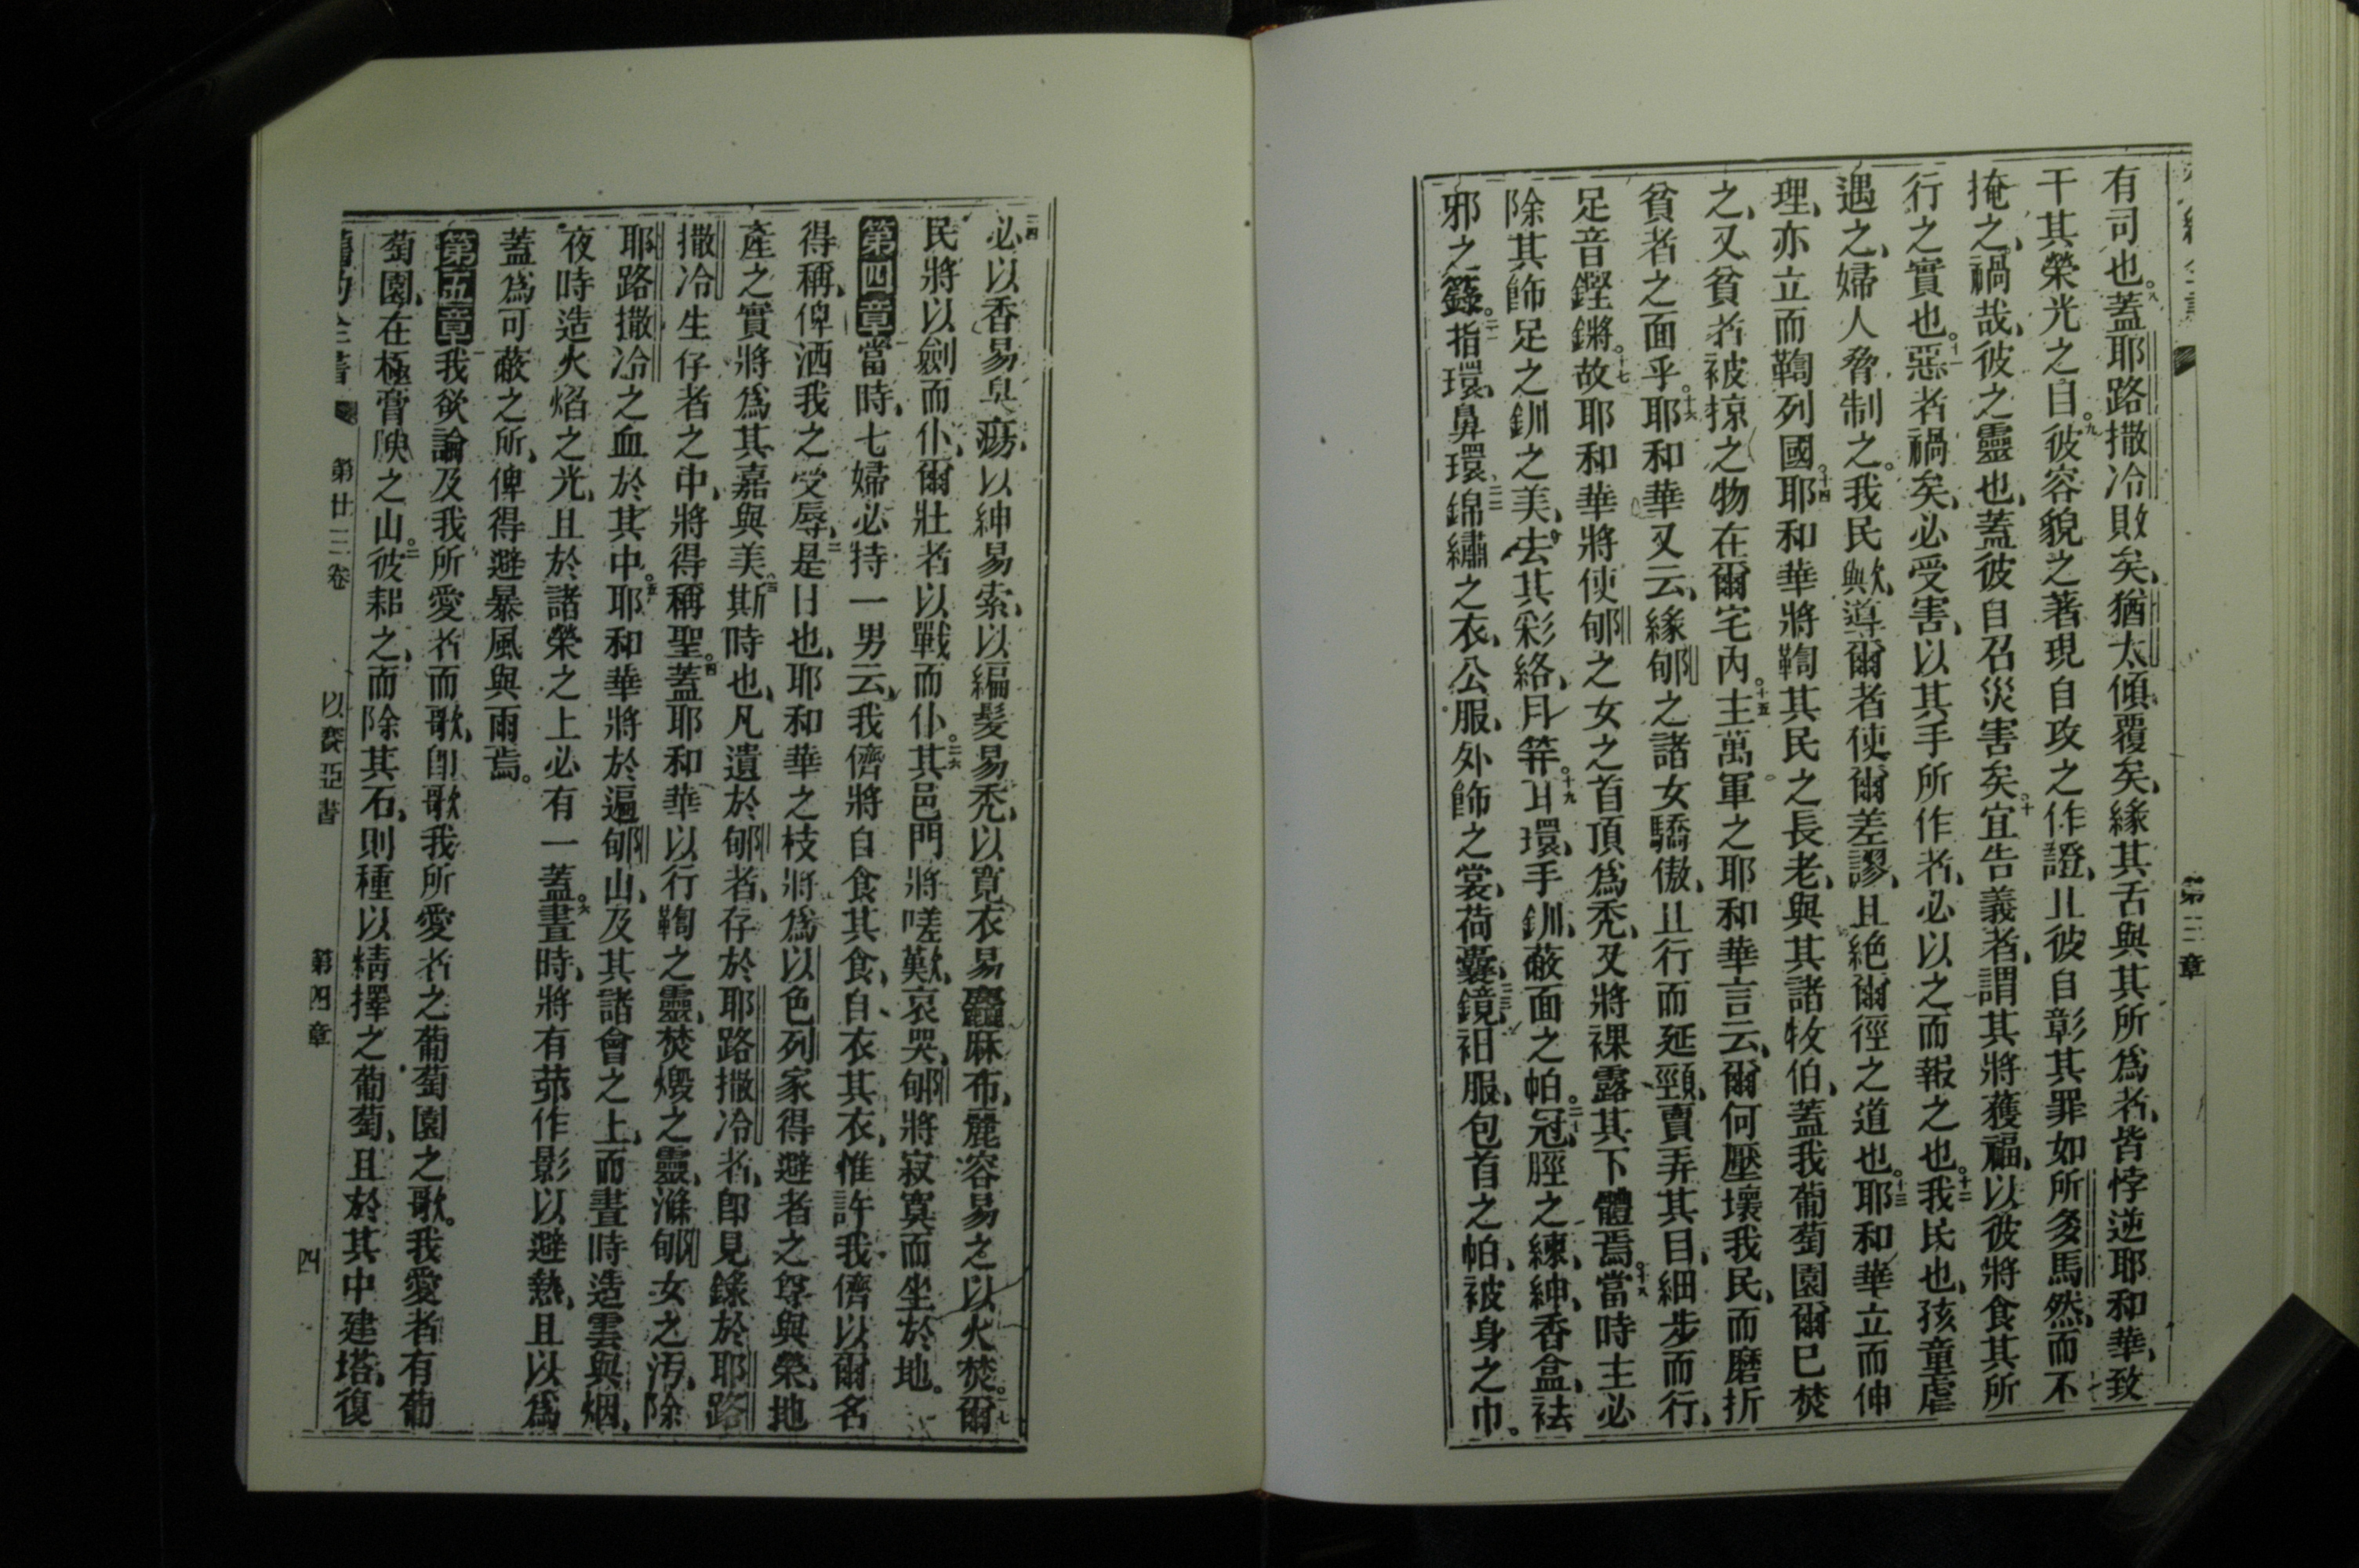 第三章
有司也。八蓋耶路撒冷敗矣、猶太傾覆矣、緣其舌與其所爲者、皆悖逆耶和華、致
干其榮光之目。九彼容貌之著現自攻之作證、且彼自彰其罪如所多馬然、而不
掩之、禍哉、彼之靈也、蓋彼自召災害矣。十宜告義者、謂其將獲福、以彼將食其所
行之實也。十一惡者禍矣、必受害、以其手所作者、必以之而報之也。十二我民也、孩童虐
遇之、婦人脅制之。我民歟、導爾者使爾差謬、且絶爾徑之道也。十三耶和華立而伸
理、亦立而鞫列國。十四耶和華將鞫其民之長老、與其諸牧伯、蓋我葡萄園爾已焚
之、又貧者被掠之物在爾宅內。十五主萬軍之耶和華言云、爾何壓壞我民、而磨折
貧者之面乎。十六耶和華又云、緣郇之諸女驕傲、且行而延頸、賣弄其目、細步而行、
足音鏗鏘。十七故耶和華將使郇之女之首頂爲禿、又將裸露其下體焉。十八當時主必
除其飾足之釧之美、去其彩絡、月筓。十九耳環、手釧、蔽面之帕。二十冠、脛之練、紳、香盒、袪
邪之籙。二一指環、鼻環、二二錦繡之衣、公服、外飾之裳、荷囊、二三鏡、衵服、包首之帕、被身之巾。
二四必以香易臭、瘍、以紳易索、以編髮易禿、以寬衣易麤麻布、麗容易之以火焚。爾
民將以劍而仆、爾壯者以戰而仆。二六其邑門將嗟歎、哀哭、郇將寂寞而坐於地。
第四章 一當時、七婦必持一男云、我儕將自食其食、自衣其衣、惟許我儕以爾名
得稱、俾洒我之受辱、二是日也、耶和華之枝將爲以色列家得避者之尊與榮、地
產之實將爲其嘉與美、三斯時也、凡遺於郇者、存於耶路撒冷者、卽見錄於耶路
撒冷生存者之中、將得稱聖。四蓋耶和華以行鞫之靈、焚燬之靈、滌郇女之汚、除
耶路撒冷之血於其中。五耶和華將於遍郇山、及其諸會之上、而晝時造雲與烟、
夜時造火焰之光、且於諸榮之上必有一蓋。六晝時、將有茆作影以避熱、且以爲
蓋爲可蔽之所、俾得避暴風與雨焉。
第五章 一我欲論及我所愛者而歌、卽歌我所愛者之葡萄園之歌。我愛者有葡
萄園、在極膏腴之山。二彼耜之、而除其石、則種以精擇之葡萄、且於其中建塔、復
第廿三卷 以賽亞書 第四章 四